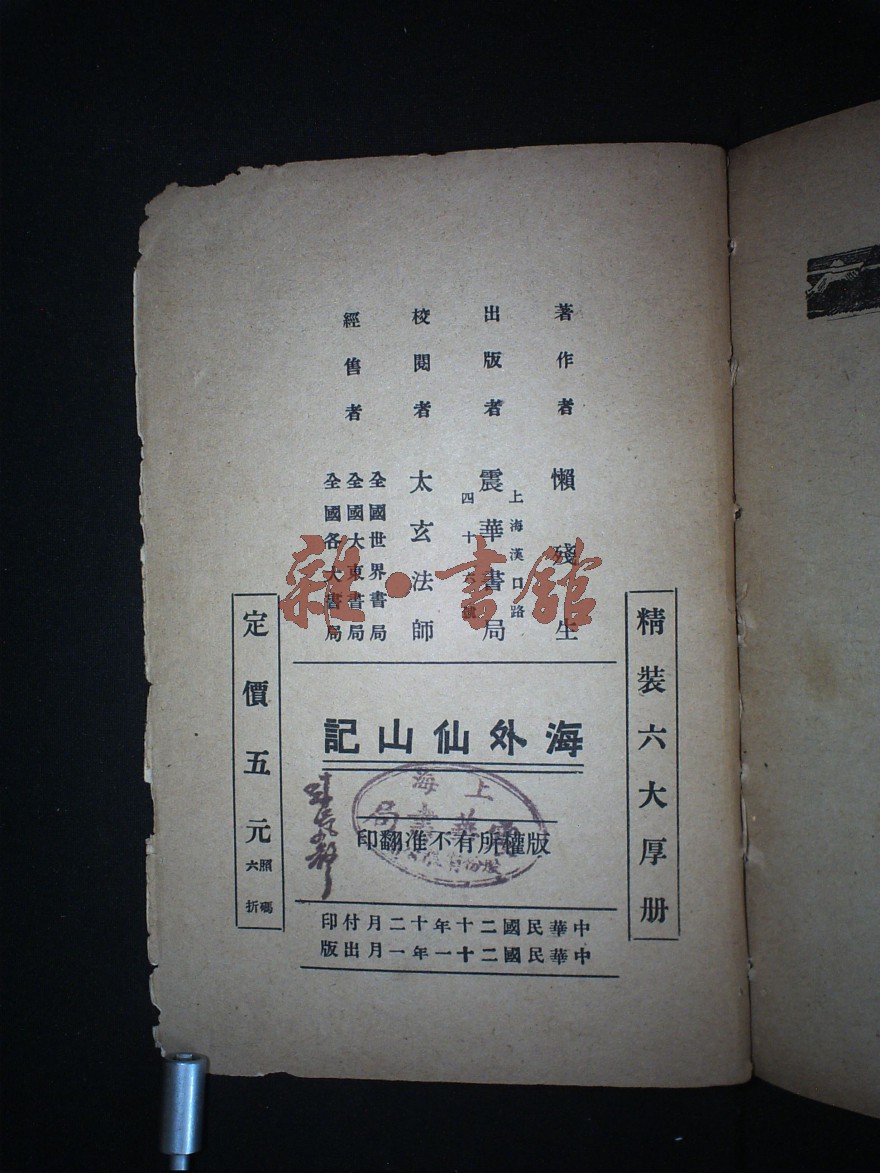 著作者 懶殘生
出版者 震華書局
上海漢口路
四十六號
校閱者 太玄法師
經售者
全國世界書局
全國大東書局
全國各大書局
精裝六大厚册
海外仙山記
版權所有不准翻印
上海
華書局
股份有限
中華民國二十年十二月付印
中華民國二十一年一月出版
定價五元
照碼六折
雜·書館